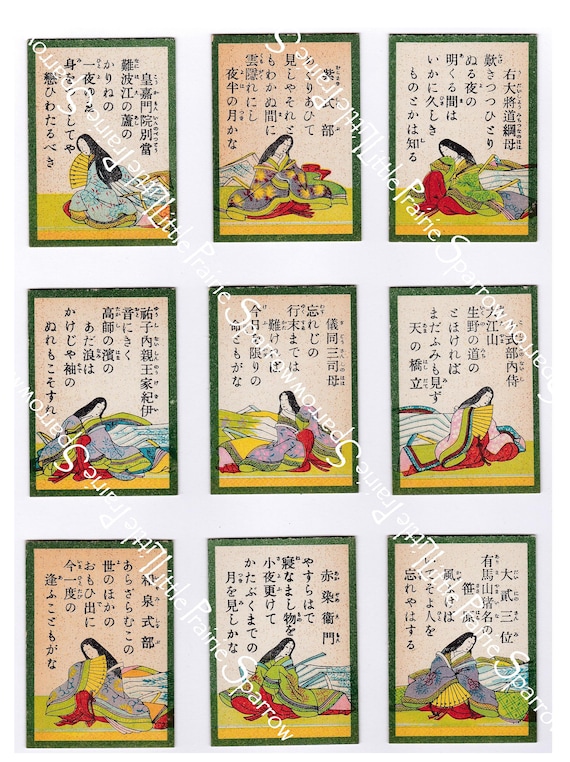 皇嘉門院別當
難波江の蘆の
かりねの
一夜ゆゑ
身をつくしてや
戀ひわたるべき
紫式部
めぐりあひて
見しやそれと
もわかぬ間に
雲隱れにし
夜半の月かな
右大將道綱母
歎きつつひとり
ぬる夜の
明くる間は
いかに久しき
ものとかは知る
祐子内親王家紀伊
音にきく
高師の濱の
あだ浪は
かけじや袖の
ぬれもこそすれ
儀同三司母
忘れじの
行末までは
難ければ
今日を限りの
命ともがな
小式部内侍
大江山
生野の道の
とほければ
まだふみも見ず
天の橋立
和泉式部
あらざらむこの
世のほかの
おもひ出に
今一度の
逢ふこともがな
赤染衞門
やすらはで
寢なまし物を
小夜更けて
かたぶくまでの
月を見しかな
大貳三位
有馬山猪名の
笹原
風ふけば
いでそよ人を
忘れやはする
Little Prairie Sparrow